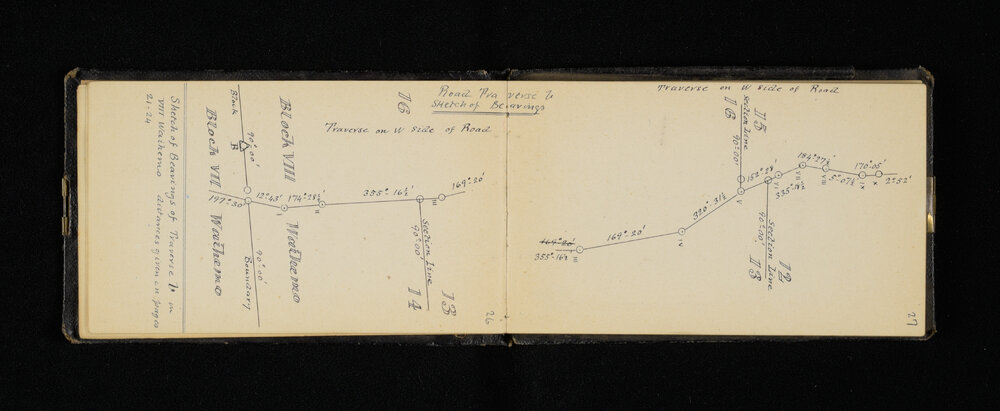 Sketch of Bearings of Traverse b in
VIII Waihemo distances given on pages
21-24
Block VIII
Waihemo
197°-30'
Block
90°-00'
B
12°-43'
I
90°-00'
Boundary
Block VIII
Waihemo
174°-28½'
II
Traverse on W side of Road
16
355°-16½'
III
169°-20'
Section Line
90°-00'
14
13
26
Road Traverse b
Sketch of Bearings
Traverse on W side of Road
169°-20'
355°-16½
III
169°-20'
IV
320°-31½
V
16
15
Section Line
90°-00'
152°-28½
VI
335°-18½
Section Line
90°-00'
13
12
184°-27½'
VII
VIII
5°-07½
170°-05'
IX
X
2°-52'
27